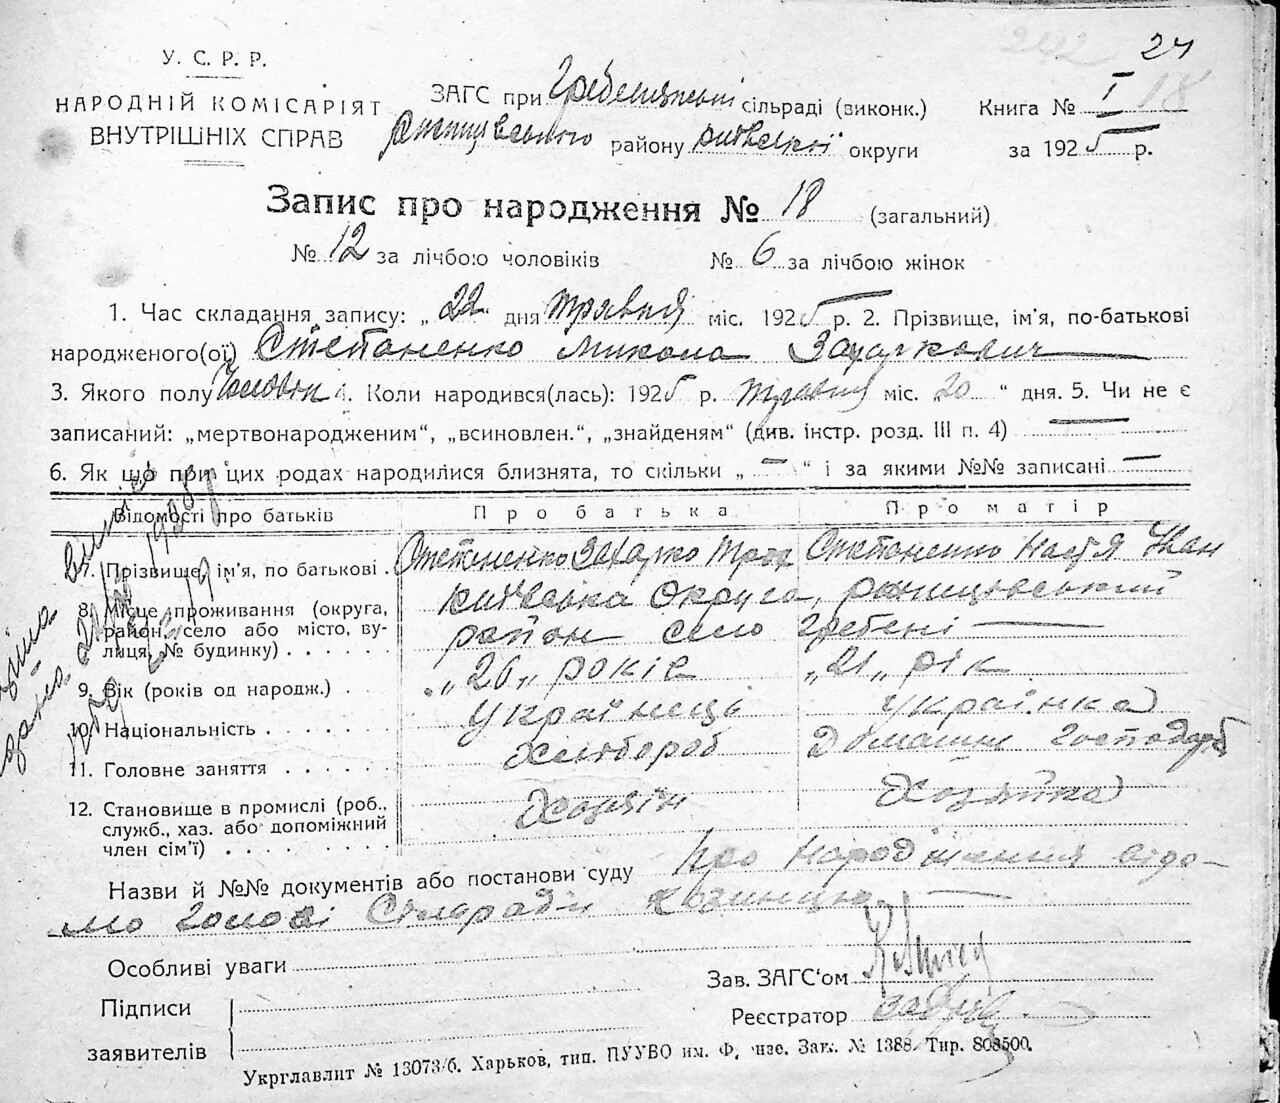 242 24
У. С. Р. Р.
НАРОДНІЙ КОМІСАРІЯТ
ВНУТРІШНІХ СПРАВ
ЗАГС при сільраді (виконк.)
району київської округи
Книга № I 18
за 1925 р.
Запис про народження № 18 (загальний)
№ 12 за лічбою чоловіків № 6 за лічбою жінок
1. Час складання запису: „ 22 “ дня травня міс. 1925 р. 2. Прізвище, ім'я, по-батькові
народженого(ої) Степаненко Микола Захаркович
3. Якого полу Чоловік 4. Коли народився(лась): 1925 р. травня міс. 20 “ дня. 5. Чи не є
записаний: „мертвонародженим“, „всиновлен.“, „знайденям“ (див. інстр. розд. III п. 4) —
6. Як що при цих родах народилися близнята, то скільки „ — “ і за якими №№ записані —
Відомості про батьків Про батька Про матір
7. Прізвище, ім'я, по батькові . Степаненко Захарко Степаненко Настя Іван
8. Місце проживання (округа, район, село або місто, вулиця, № будинку) . . . . . Київська Округа,
район село Гребені —
9. Вік (років од народж.) . . „26„ років „21„ рік
10. Національність . . . . . . Українець Українка
11. Головне заняття . . . . . . Хлібороб Домашнє
12. Становище в промислі (роб., служб., хаз. або допоміжний член сім'ї) . . . . . . . . Хазяїн Хозяйка
Назви й №№ документів або постанови суду Про народження відо-
мо голові Сільради
Особливі уваги
Зав. ЗАГС‘ом
Підписи
заявителів
Реєстратор
Укрглавлит № 13073/б. Харьков, тип. ПУУВО им. Ф. нзе. Зак. № 1388. Тир. 808500.